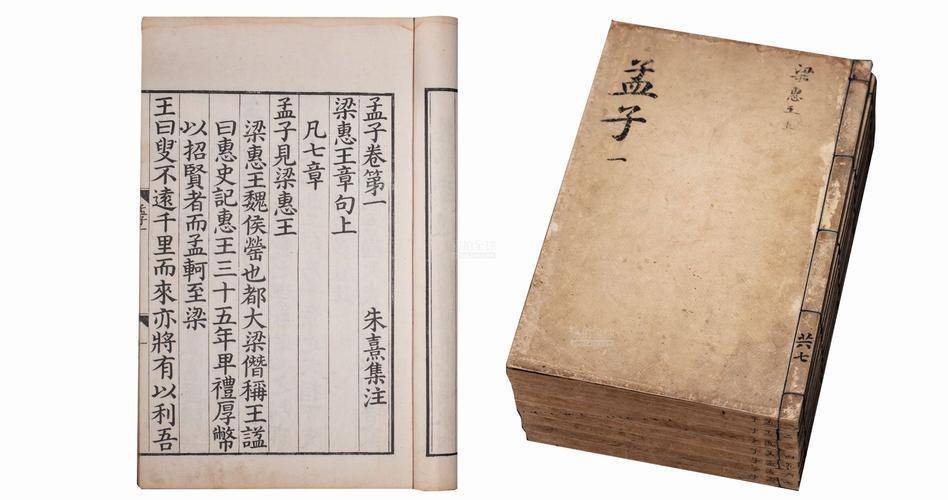 孟子卷第一
朱熹集注
梁惠王章句上
凡七章
孟子見梁惠王
梁惠王魏侯罃也都大梁僭稱王謚
曰惠史記惠王三十五年卑禮厚幣
以招賢者而孟軻至梁
王曰叟不遠千里而來亦將有以利吾
孟子一
梁惠王上
共七